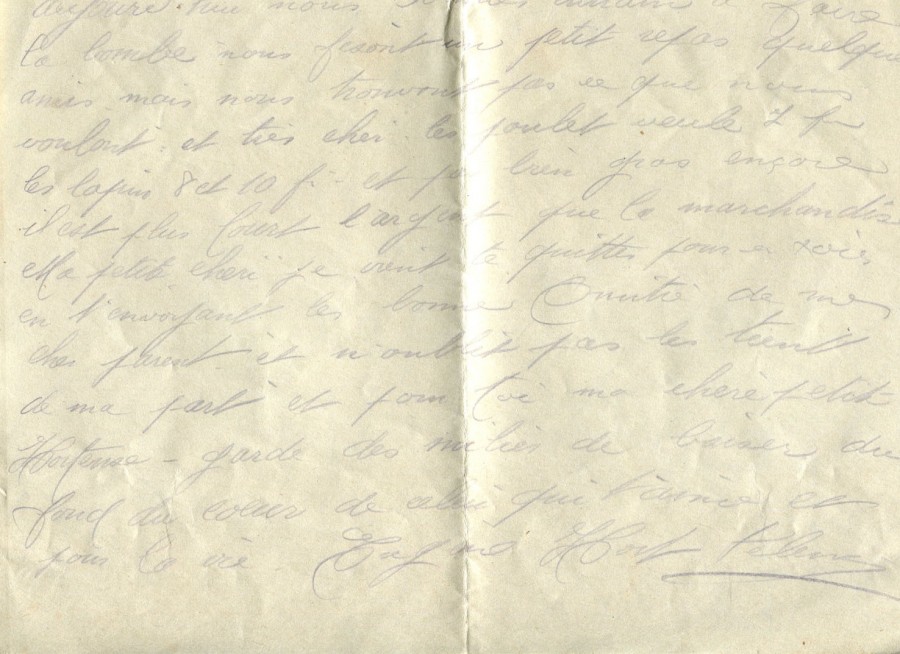 nous a faire
la bombe nous fesont un petit repas quelque
amis mais nous trouvont pas ce que nous
voulont et très cher les poulet veule 7 fr
les lapins 8 et 10 fr et pas bien gros encore
il est plus court l'argent que la marchandise
Ma petite cheri je vient te quitter pour ce soir
en t'envoyant les bonne Amitié de mes
cher parent et n'oublit pas les tient
de ma part et pour toi ma cherè petite
Hortense - garde des milies de baiser du
fond du coeur de celui qui t'aime et
pour la vie Eugène Hort